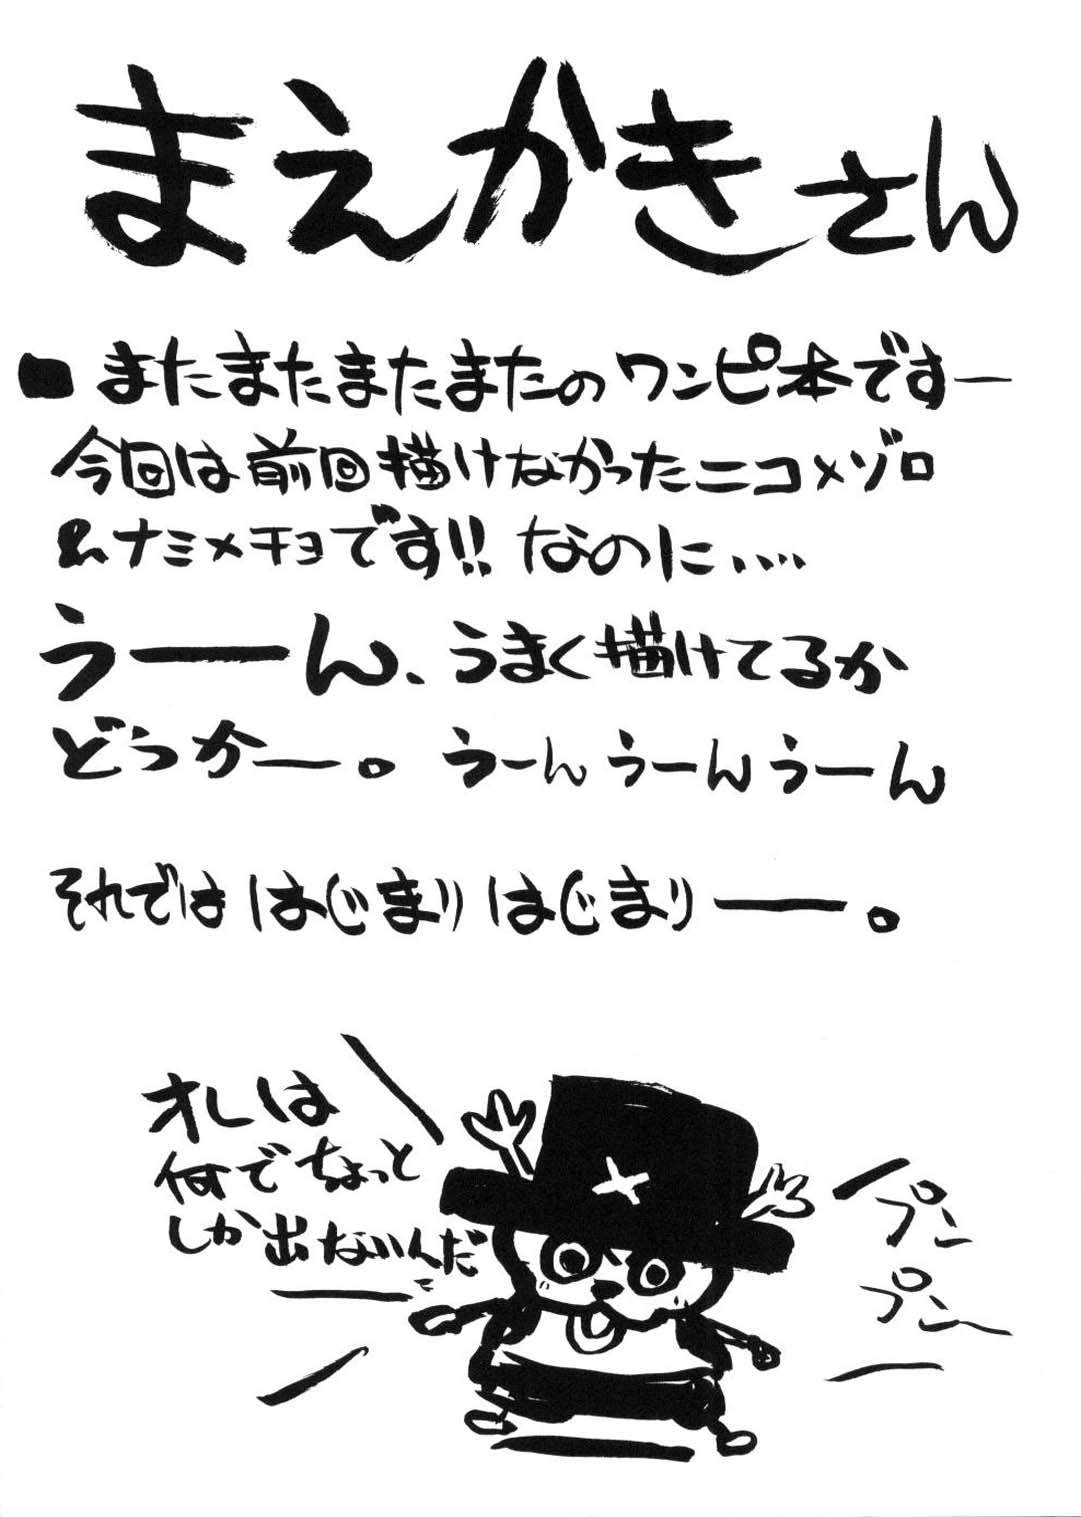 まえかきさん
■またまたまたまたのワンピ本ですー
今回は前回描けなかったニコ×ゾロ
&ナミ×チョです!!なのに・・・・
うーん、うまく描けてるか
どうかー。うーんうーんうーん
それでははじまりはじまりー。
オレは
何でちょっと
しか出ないんだ
プン
プンー